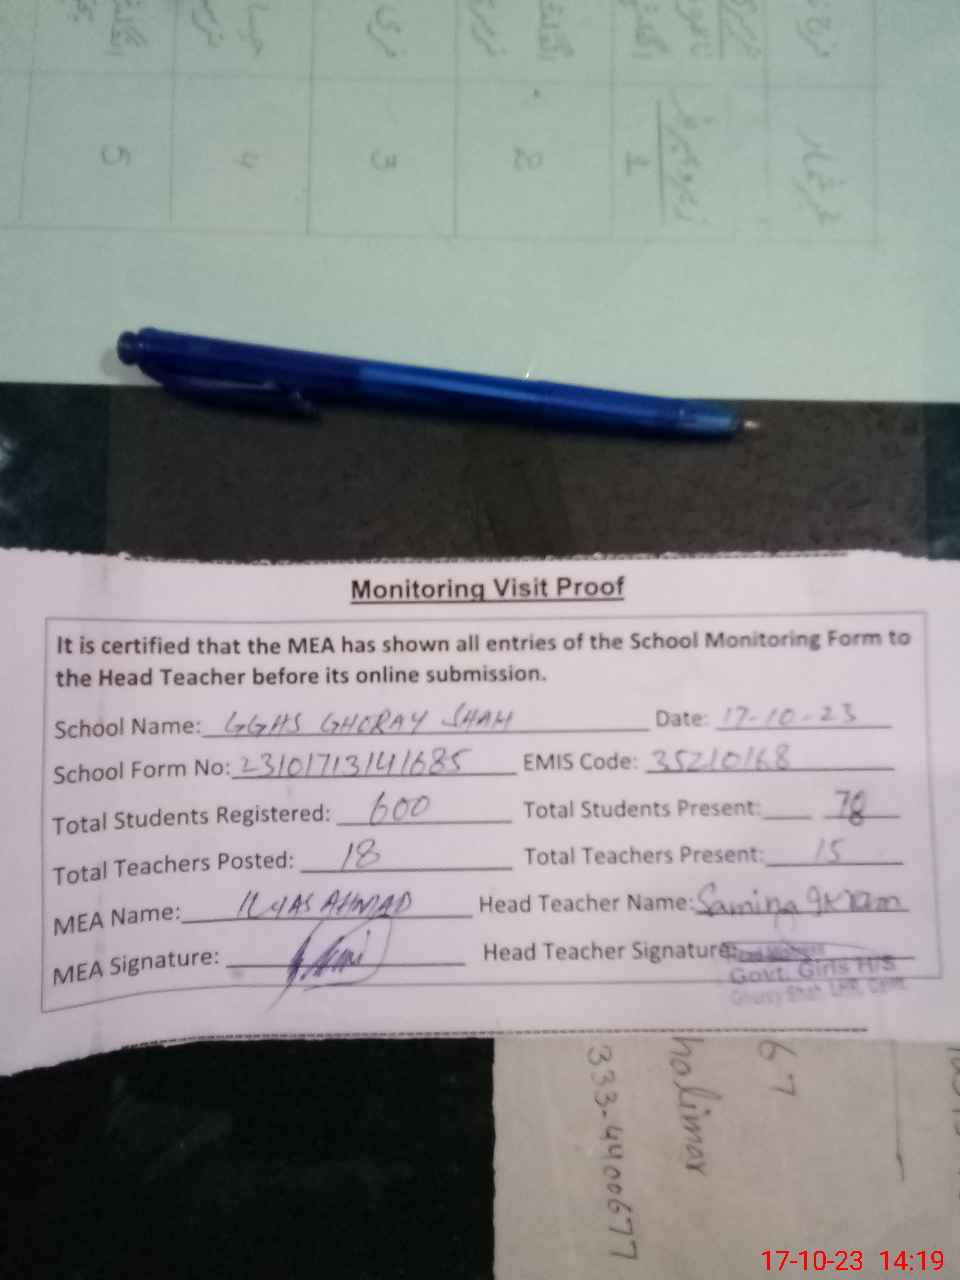 5 4 3 2 1
Monitoring Visit Proof
It is certified that the MEA has shown all entries of the School Monitoring Form to
the Head Teacher before its online submission.
School Name: GGHS GHORAY SHAH Date: 17-10-23
School Form No: 23101713141685 EMIS Code: 35210168
Total Students Registered: 600 Total Students Present: 78
Total Teachers Posted: 18 Total Teachers Present: 15
MEA Name: ILYAS AHMAD Head Teacher Name: Samina Ikram
MEA Signature: Head Teacher Signature:
Govt. Girls H/S
67
holimar
333-4400677
17-10-23 14:19